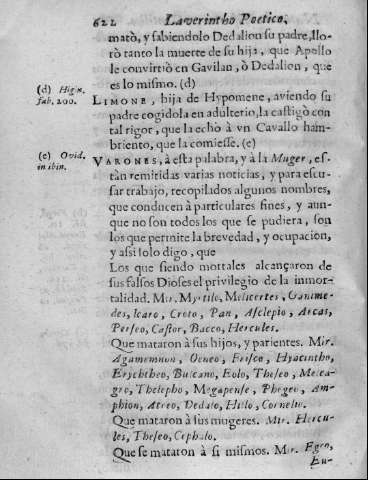 622 Laverintho Poetico,
matò, y sabiendolo Dedalion su padre, llo-
rò tanto la muerte de su hija, que Apollo
le convirtiò en Gavilan, ò Dedalion, que
es lo mismo. (d)
(d) Higin.
fab. 200.
LIMONE, hija de Hypomene, aviendo su
padre cogidola en adulterio, la castigò con
tal rigor, que la echò à vn Cavallo ham-
briento, que la comiesse. (e)
(e) Ovid.
in ibin.
VARONES, à esta palabra, y à la Muger, es-
tàn remitidas varias noticias, y para escu-
sar trabajo, recopilados algunos nombres,
que conducen à particulares fines, y aun-
que no son todos los que se pudiera, son
los que permite la brevedad, y ocupacion,
y assi solo digo, que
Los que siendo mortales alcançaron de
sus falsos Dioses el privilegio de la inmor-
talidad. Mir. Myrtilo, Melicertes, Ganime-
des, Icaro, Croto, Pan, Asclepio, Arcas,
Perseo, Castor, Bacco, Hercules.
Que mataron à sus hijos, y parientes. Mir.
Agamemnon, Oeneo, Frisco, Hyacintho,
Erychtheo, Bulcano, Eolo, Theseo, Melea-
gro, Thelepho, Megapense, Phegeo, Am-
phion, Atreo, Dedalo, Hilo, Cornelio.
Que mataron à sus mugeres. Mir. Hercu-
les, Theseo, Cephalo.
Que se mataron à si mismos. Mir. Egeo,
Eu-